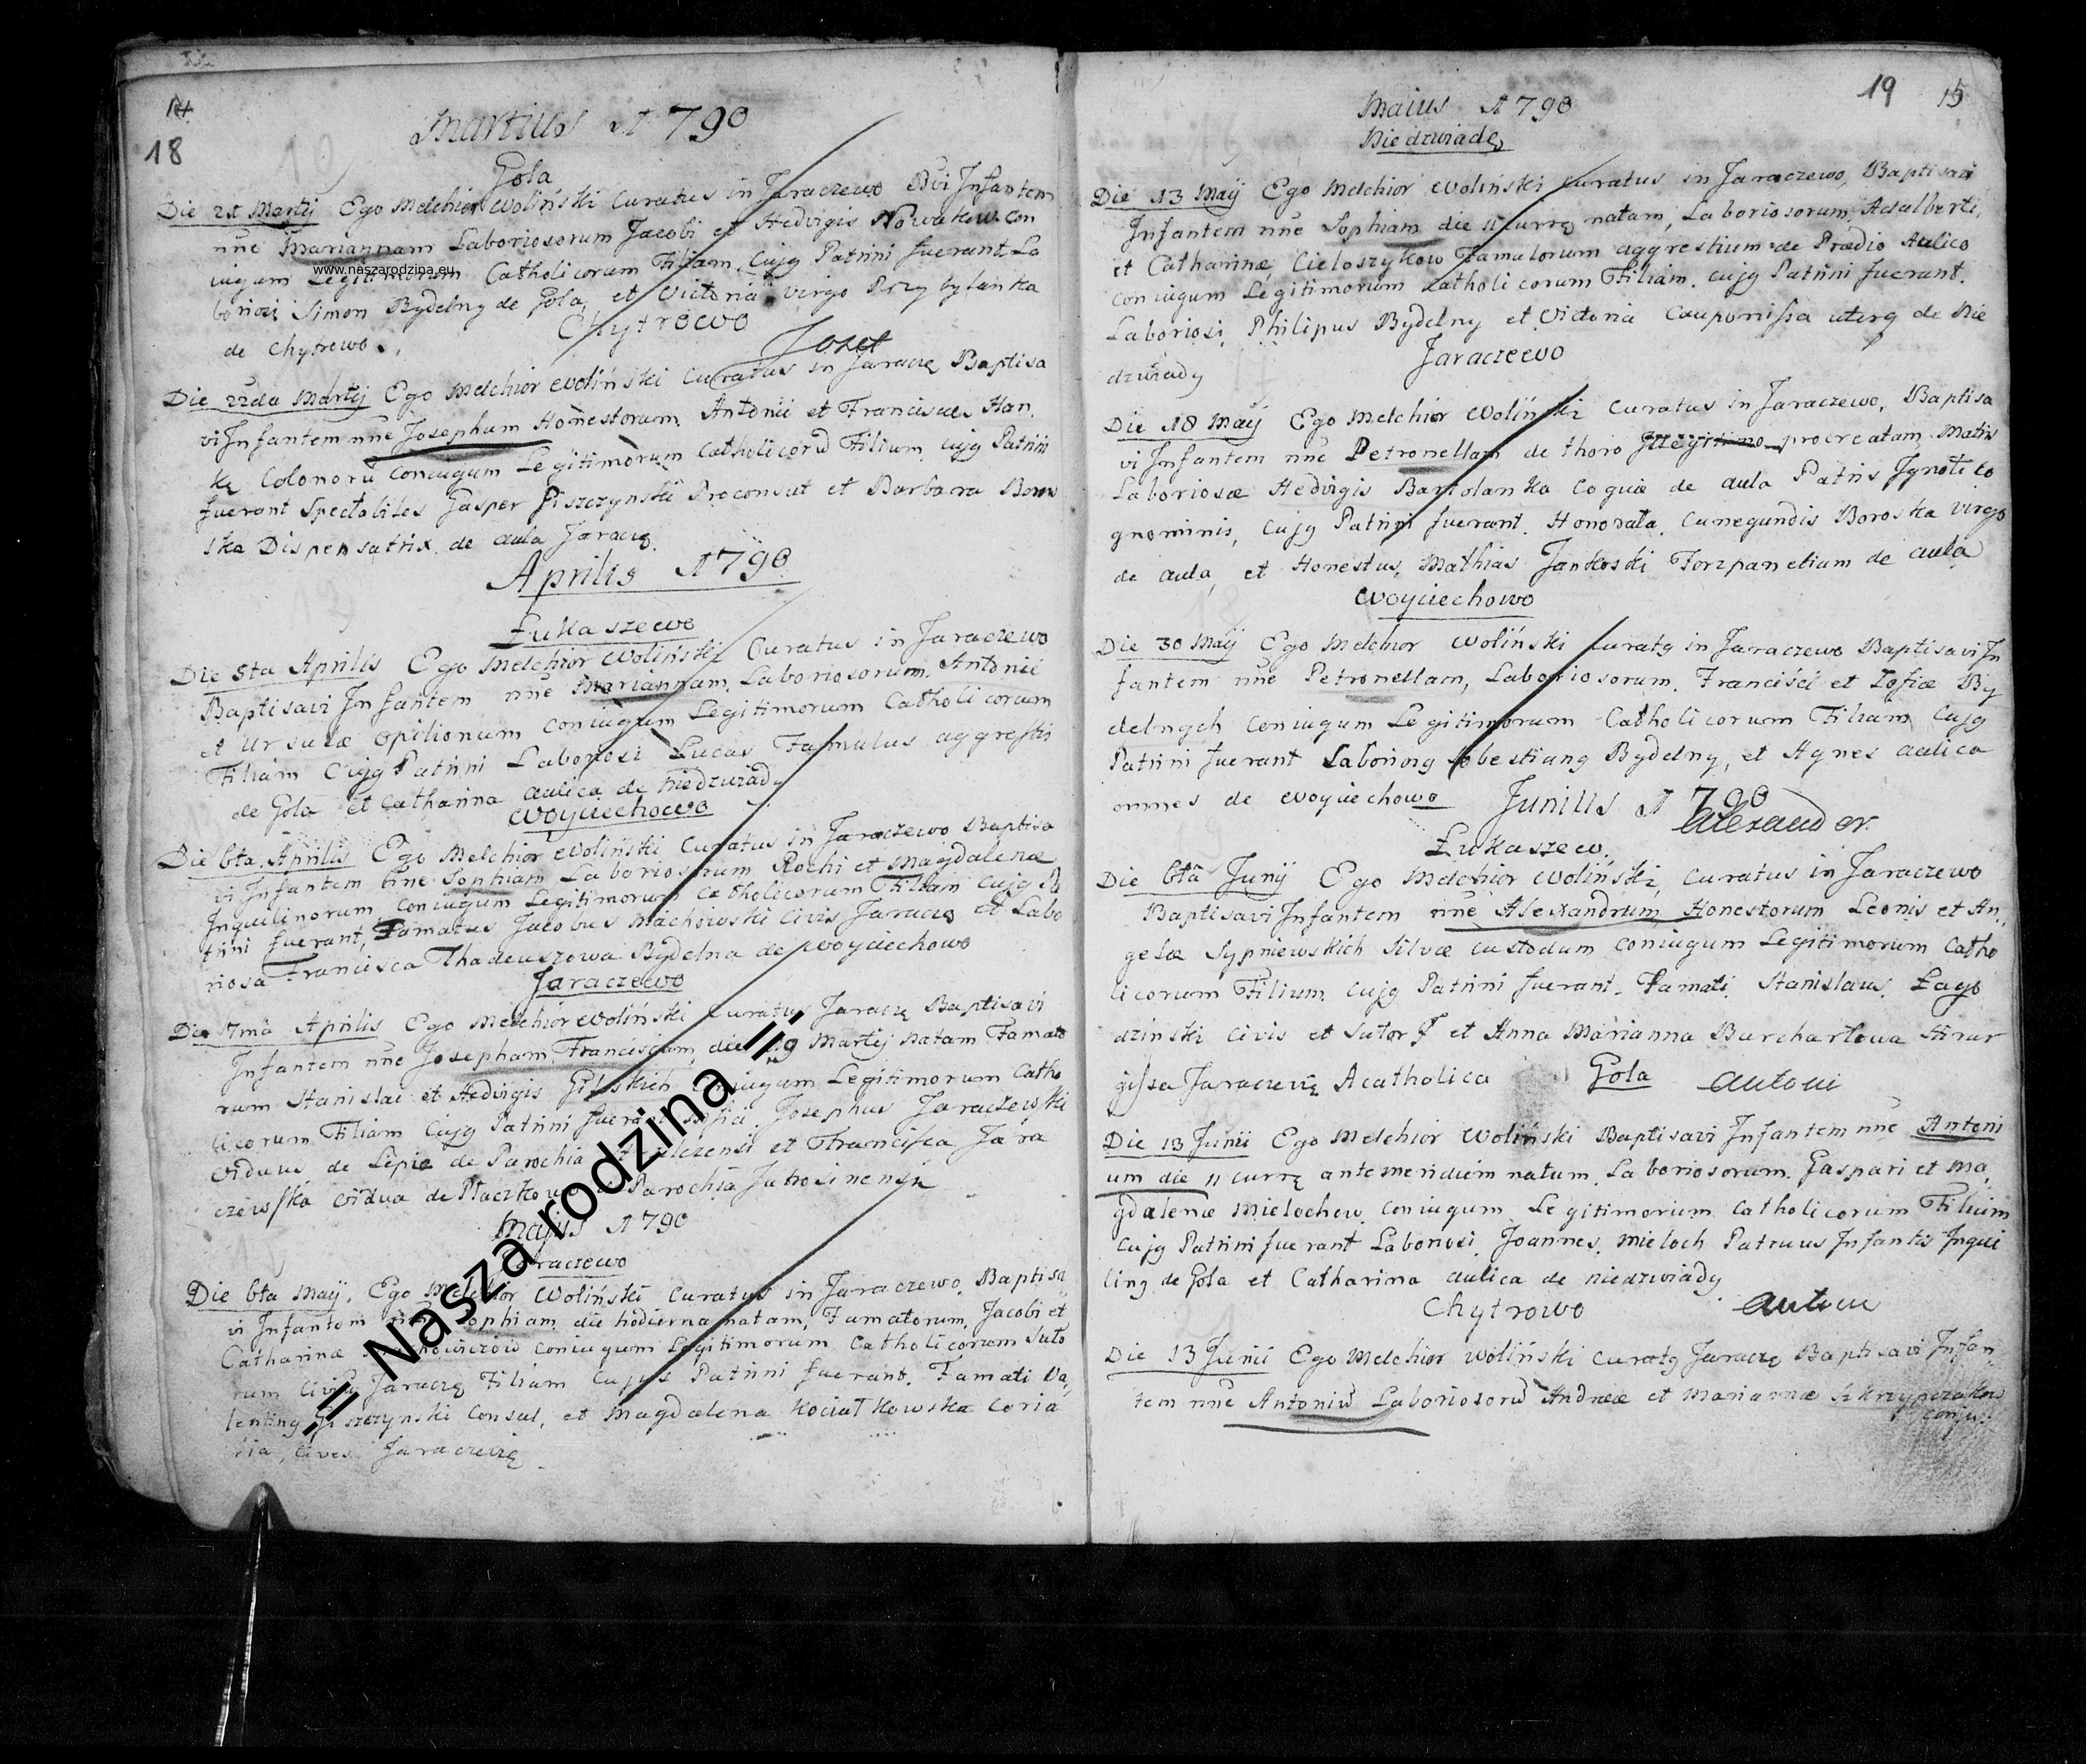 14
18
Martius A 790
Gola
Die 21 Martij Ego Melchior Woliński Curatus in Jaraczewo Bvi Infantem
nne Mariannam Laboriosorum Jacobi et Hedvigis Nowakow Con
iugum Legitimorum Catholicorum Filiam. Cujg Patrini fuerant La
www.naszarodzina.eu
boriosi Simon Bydelny de Gola, et Victoria virgo Przybylanka
de Chytrowo.
Chytrowo
Jozef
Die 22da Martij Ego Melchior Woliński Curatus in Jaracze Baptisa
vi Infantem nne Josephum Honestorum. Antonii et Franciscae Han.
Colonorū Coniugum Legitimorum Catholicorū Filium, cujg Patrini
fuerant Spectabiles Gasper Giszczynski Proconsul et Barbara Boro
ska Dispensatrix de aula Jaracze.
Aprilis A 790
Łukaszewo
Die 5ta Aprilis Ego Melchior Woliński Curatus in Jaraczewo
Baptisavi Infantem nne Mariannam, Laboriosorum. Antonii
et Ursulae opilionum Coniugum Legitimorum Catholicorum
Filiam Cujg Patrini Laboriosi Lucas Famulus aggrestis
de Gola et Catharina aulica de Niedzwiady
Woyciechowo
Die 6ta Aprilis Ego Melchior Woliński Curatus in Jaraczewo Baptisa
vi Infantem nne Sophiam Laboriosorum Rochi et Magdalenae
Inquilinorum Coniugum Legitimorum Catholicorum Filiam cujg Pa
trini fuerant, Famatus Jacobus Machowski Civis Jaracze et Labo
riosa Francisca Thadeuszowa Bydelna de Woyciechowo
Jaraczewo
Die 7ma Aprilis Ego Melchior Woliński Curatus Jaracze Baptisavi
Infantem nne Josepham Franciscam, die 19 Martij Natam Famato
rum Stanislai et Hedvigis Coniugum Legitimorum Catho
licorum Filiam Cujg Patrini fuerant Josephus Jaraczewski
Viduus de Lepie de Parochia et Francisca Jara
czewska Vidua de Parochia Jutrosinensi
Majus A 790
Jaraczewo
Die 6ta Maij. Ego Melchior Woliński Curatus in Jaraczewo. Baptisa
vi Infantem nne Sophiam die hodierna natam, Famatorum, Jacobi et
Catharinae Coniugum Legitimorum Catholicorum Suto
rum Civiū Jaracze Filiam Cujus Patrini fuerant. Famati Va
lenting Giszczynski Consul, et Magdalena Kociałkowska Coria
ria, Cives Jaraczewie
= Nasza rodzina =
19 15
Maius A 790
Niedzwiade
Die 13 Maij Ego Melchior Woliński Curatus in Jaraczewo, Baptisavi
Infantem nne Sophiam die 11 curre natam, Laboriosorum, Adalberti,
et Catharinae Cieloszykow Famulorum aggrestium de Praedio Aulico
Coniugum Legitimorum Catholicorum Filiam. cujg Patrini fuerant.
Laboriosi, Philipus Bydelny et Victoria Cauponissa uterg de Nie
dzwiady
Jaraczewo
Die 18 Maij Ego Melchior Woliński Curatus in Jaraczewo, Baptisa
vi Infantem nne Petronellam de thoro Illegitimo procreatam Matris
Laboriosae Hedvigis Bartolanka Coquae de aula Patris Ignoti Co
gnominis, cujg Patrini fuerant. Honorata. Cunegundis Boroska virgo
de aula, et Honestus, Mathias Jankoski Forzpanetiam de aula
Woyciechowo
Die 30 Maij Ego Melchior Woliński Curatg in Jaraczewo Baptisavi In
fantem nne Petronellam, Laboriosorum. Francisci et Zofiae By
delnych Coniugum Legitimorum Catholicorum Filiam Cujg
Patrini fuerant Laboriosg Sebestiang Bydelny, et Agnes aulica
omnes de Woyciechowo
Junius A 790
Alexander.
Łukaszew.
Die 6ta Junij Ego Melchior Woliński, Curatus in Jaraczewo
Baptisavi Infantem nne Alexandrum Honestorum Leonis et An,
gelae Sypniewskich Silvae custodum Coniugum Legitimorum Catho
licorum Filium, Cujg Patrini fuerant. Famati. Stanislaus. Łago
dzinski Civis et Sutor J et Anna Marianna Burchartowa Hirur
gissa Jaraczewie Acatholica
Gola
Antoni
Die 13 Junii Ego Melchior Woliński Baptisavi Infantem nne Antoni
um die 11 curre antemeridiem natum. Laboriosorum. Gaspari et Ma,
gdalenae Mielochow. Coniugum Legitimorum Catholicorum Filium
Cujg Patrini fuerant Laboriosi, Joannes. Mieloch Patruus Infantis Inqui
ling de Gola et Catharina aulica de Niedzwiady
Chytrowo
Antoni
Die 13 Junii Ego Melchior Woliński Curatg Jaracze Baptisavi Infan
tem nne Antoniū Laboriosorū Andreae et Mariannae Skrzypczakow
conju